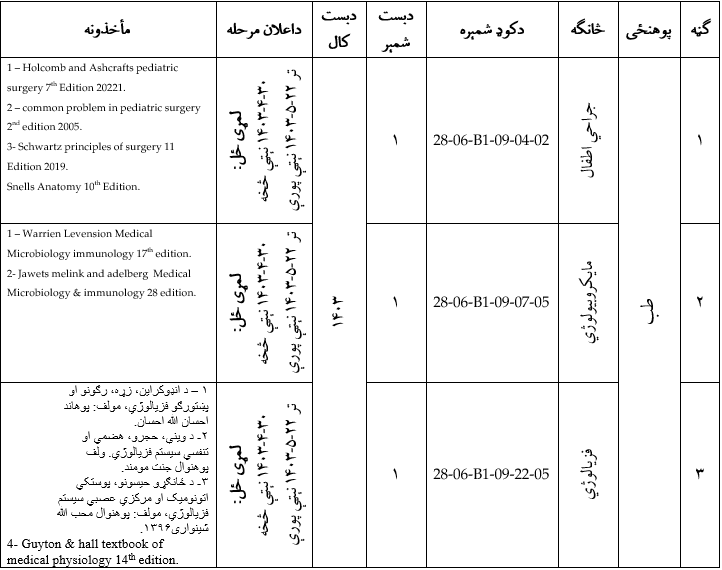 ګڼه پوهنځی څانګه دکوډ شمېره دبست شمېر دبست کال داعلان مرحله مأخذونه
۱ طب جراحي اطفال 28-06-B1-09-04-02 ۱ ۱۴۰۳
لمړی ځل:
۱۴۰۳-۴-۳۰ نېټې څخه
تر ۲۲-۵-۱۴۰۳ نېټې پورې
1 – Holcomb and Ashcrafts pediatric
surgery 7th Edition 20221.
2 – common problem in pediatric surgery
2nd edition 2005.
3- Schwartz principles of surgery 11
Edition 2019.
Snells Anatomy 10th Edition.
۲ مایکروبیولوژي 28-06-B1-09-07-05 ۱
لمړی ځل:
۱۴۰۳-۴-۳۰ نېټې څخه
تر ۲۲-۵-۱۴۰۳ نېټې پورې
1 – Warrien Levension Medical
Microbiology immunology 17th edition.
2- Jawets melink and adelberg Medical
Microbiology & immunology 28 edition.
۳ فزیالوژي 28-06-B1-09-22-05 ۱
لمړی ځل:
۱۴۰۳-۴-۳۰ نېټې څخه
تر ۲۲-۵-۱۴۰۳ نېټې پورې
۱ – د انډوکراین، زړه، رګونو او
پښتورګو فزیالوژي، مولف: پوهاند
احسان الله احسان.
۲- د ویني، حجرو، هضمي او
تنفسي سیستم فزیالوژي. ولف
پوهنوال جنت مومند.
۳- د ځانګړو حیسونو، پوستکي
اتونومیک او مرکزي عصبي سیستم
فزیالوژي، مولف: پوهنوال محب الله
شینواری۱۳۹۶.
4- Guyton & hall textbook of
medical physiology 14th edition.